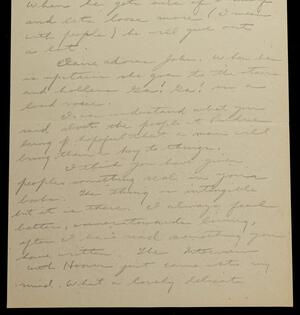 When he gets out of
and lets loose more (I mean
with people) he will give out
a lot.
Claire adores John. When he
is upstairs she goes to the stairs
and hollers Ga! Ga! in a
loud voice.
I can understand what you
said about the people at
being hopeful that a man will
bring them a key to things.
I think you have given
people something real in your
books. The thing is intangible
but it is there. I always feel
better, more towards living,
after I have read something you
have written. The Interview
with Hoover just comes to my
mind. What a lovely delicate